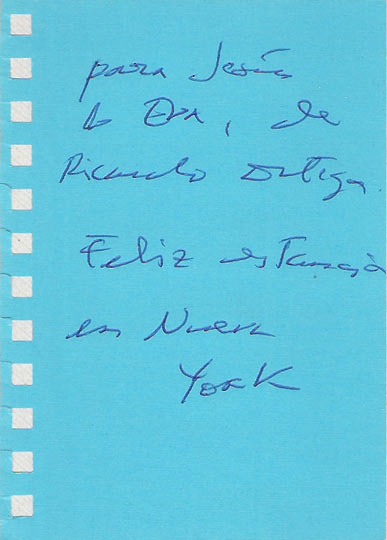 para Jesús
de
Ricardo Ortega.
Feliz estancia
en Nueva
York